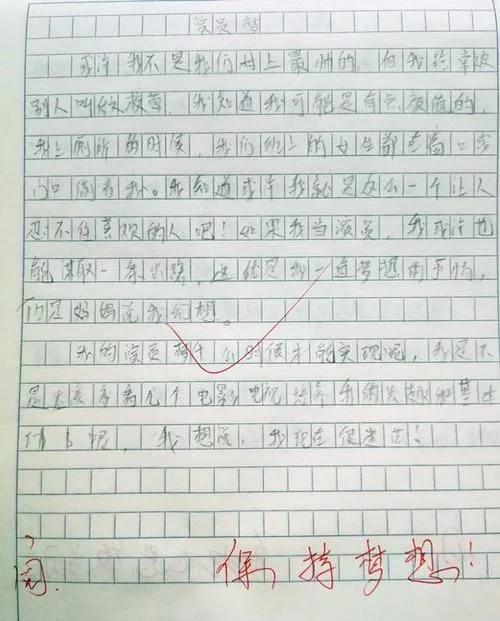 演员梦
或许我不是我们村上最帅的,但我经常被
别人叫做校草,我知道我可能是有点颜值的,
我上厕所的时候,我们班上的女生都在窗口或
门口偷看我。我知道或许我就是这么一个让人
忍不住喜欢的人吧!如果我当演员,我或许也
能谋取一条出路,这就是我一直梦想的事情,
但是妈妈说我幻想。
我的演员梦什么时候才能实现呢,我是不
是应该多看几个电影电视培养我的兴趣和基本
情节呢,我想说,我现在很迷茫!
阅.
保持梦想!